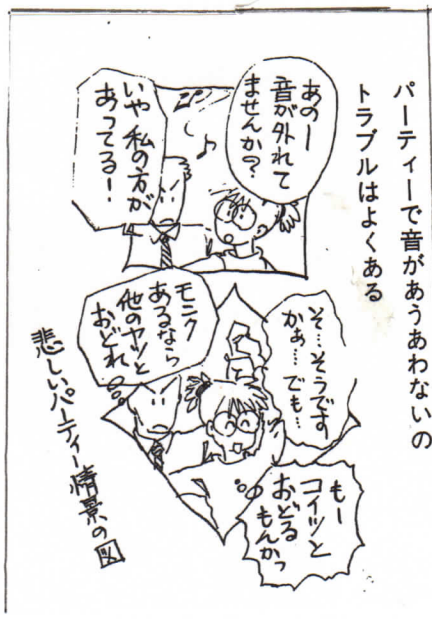 パーティーで音があうあわないの
トラブルはよくある
あのー
音が外れて
ませんか?
いや 私の方が
あってる!
そ…そうです
かぁ…でも…
モンク
あるなら
他のヤツと
おどれ
もー
コイツと
おどる
もんかっ
悲しいパーティー情景の図